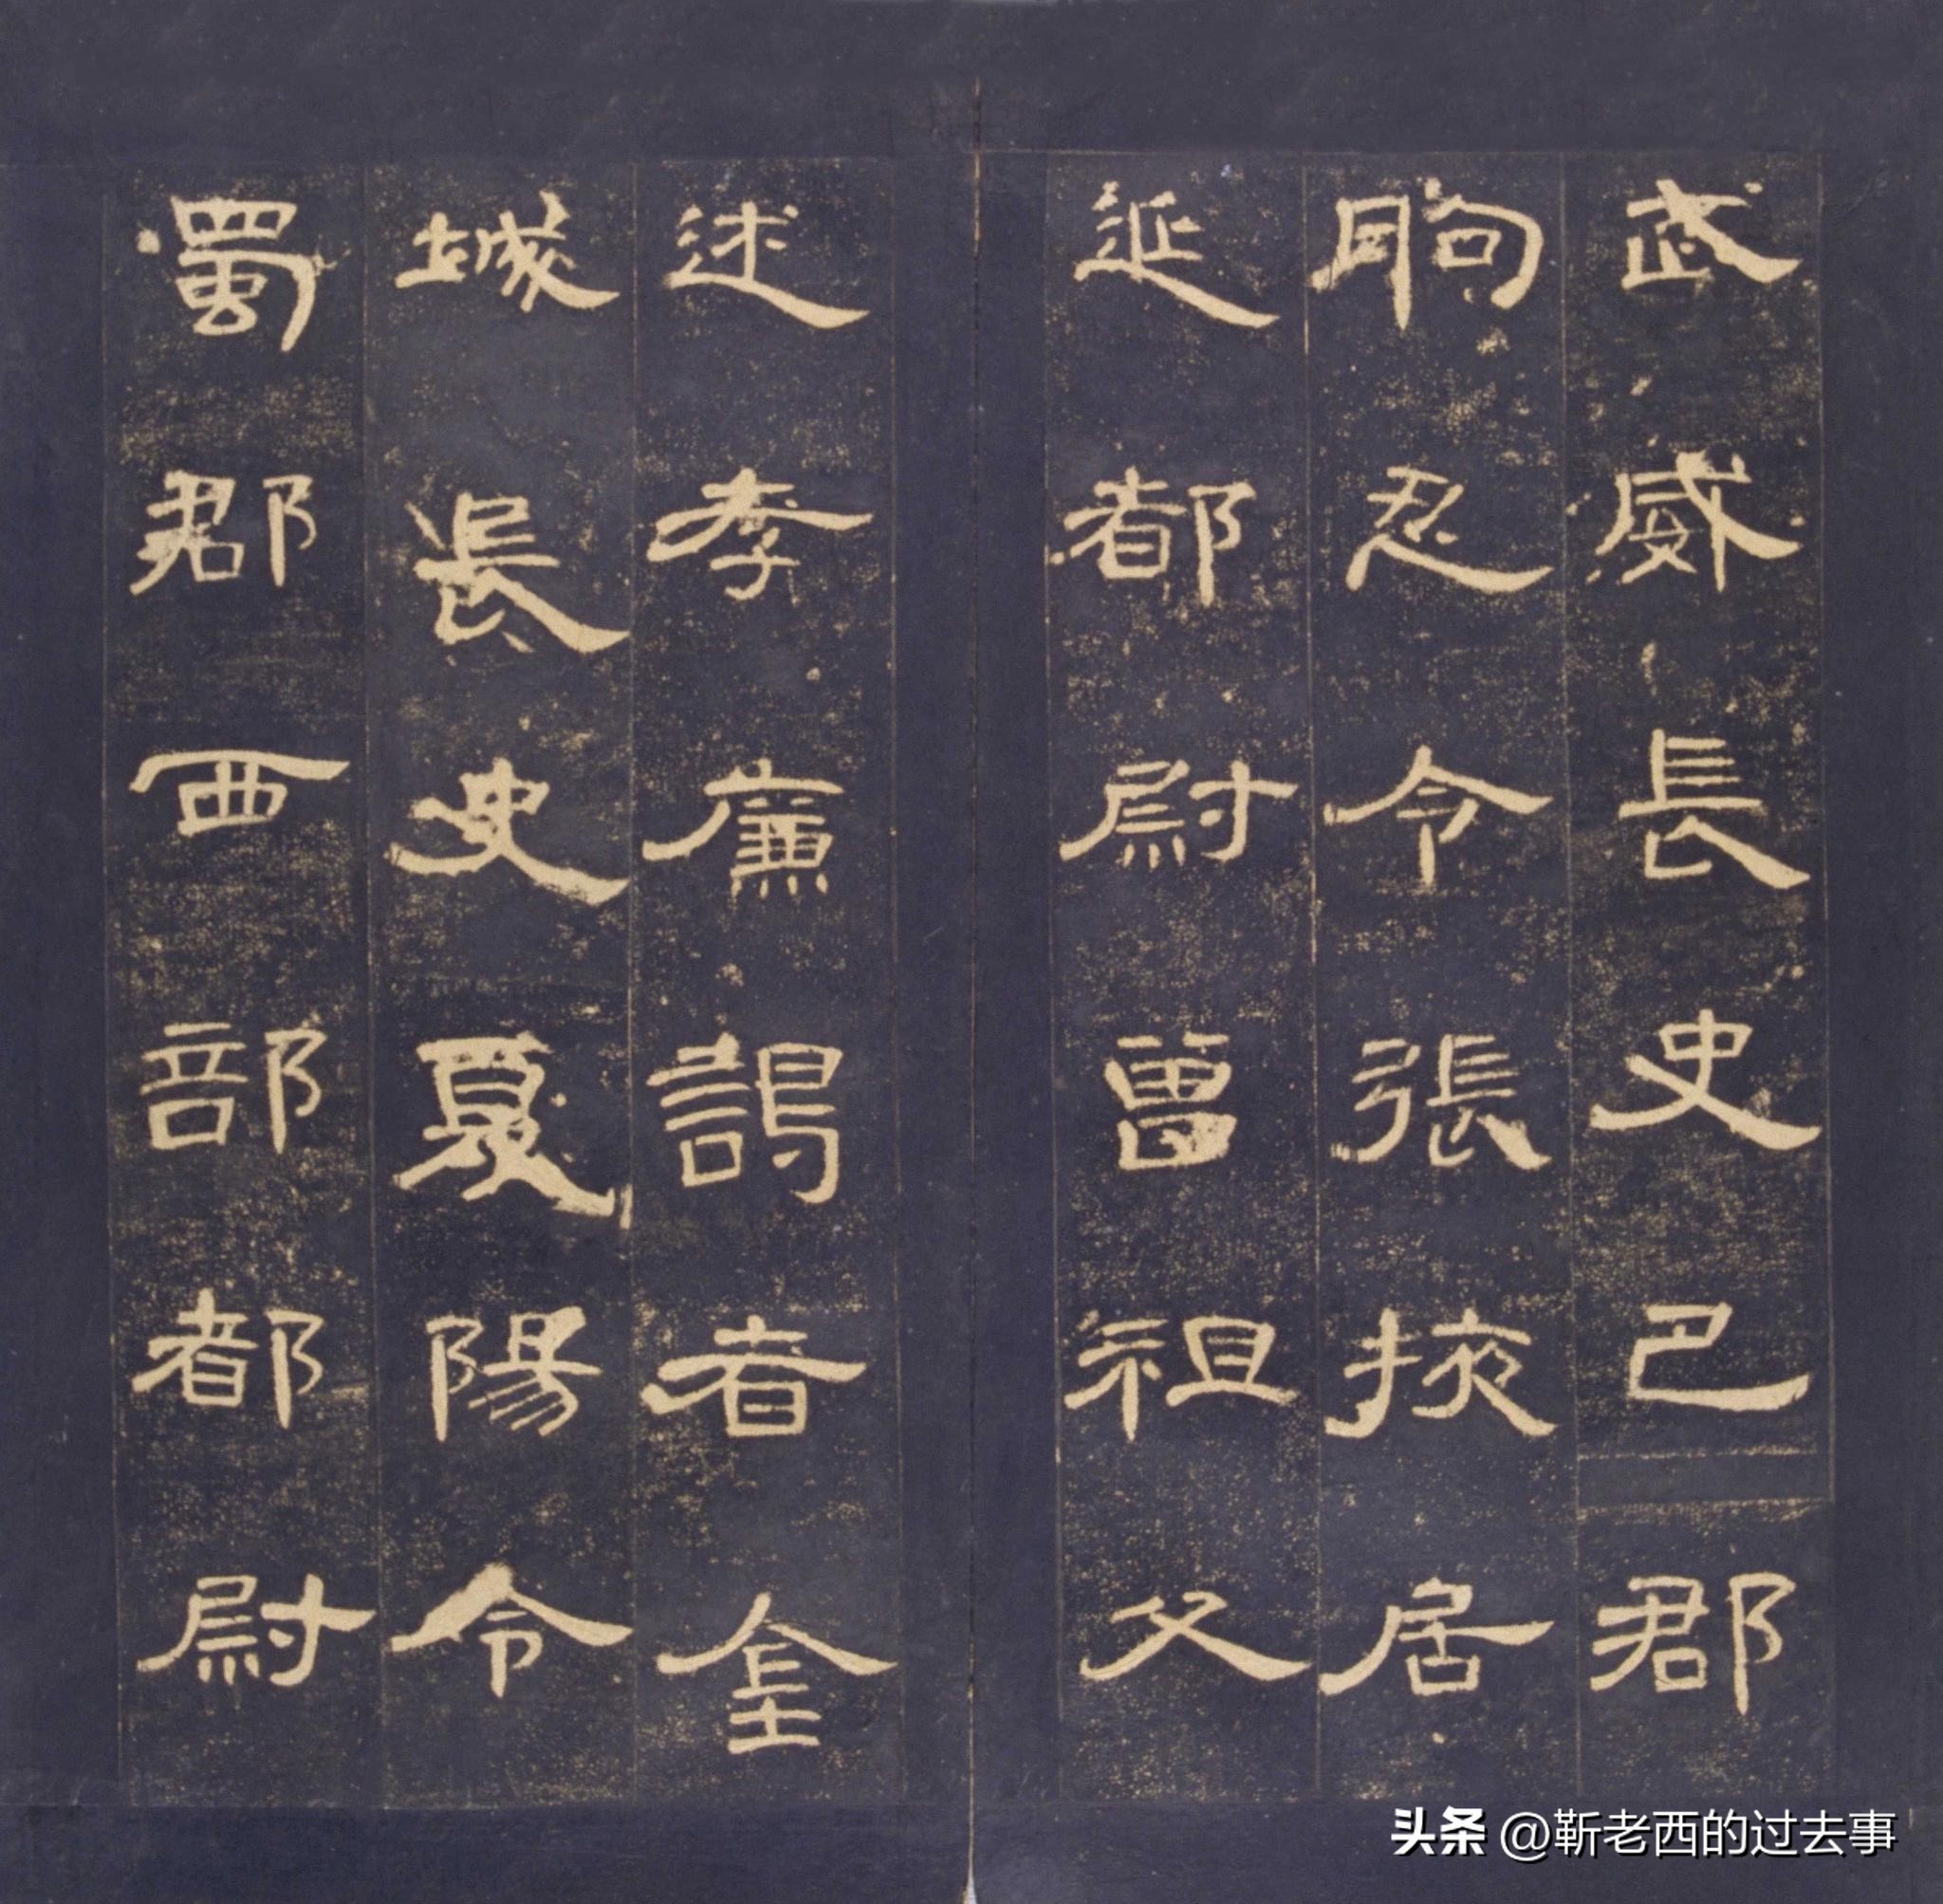 武威長史巴郡
朐忍令張掖居
延都尉曾祖父
述孝廉謁者金
城長史夏陽令
蜀郡西部都尉
头条 @靳老西的过去事